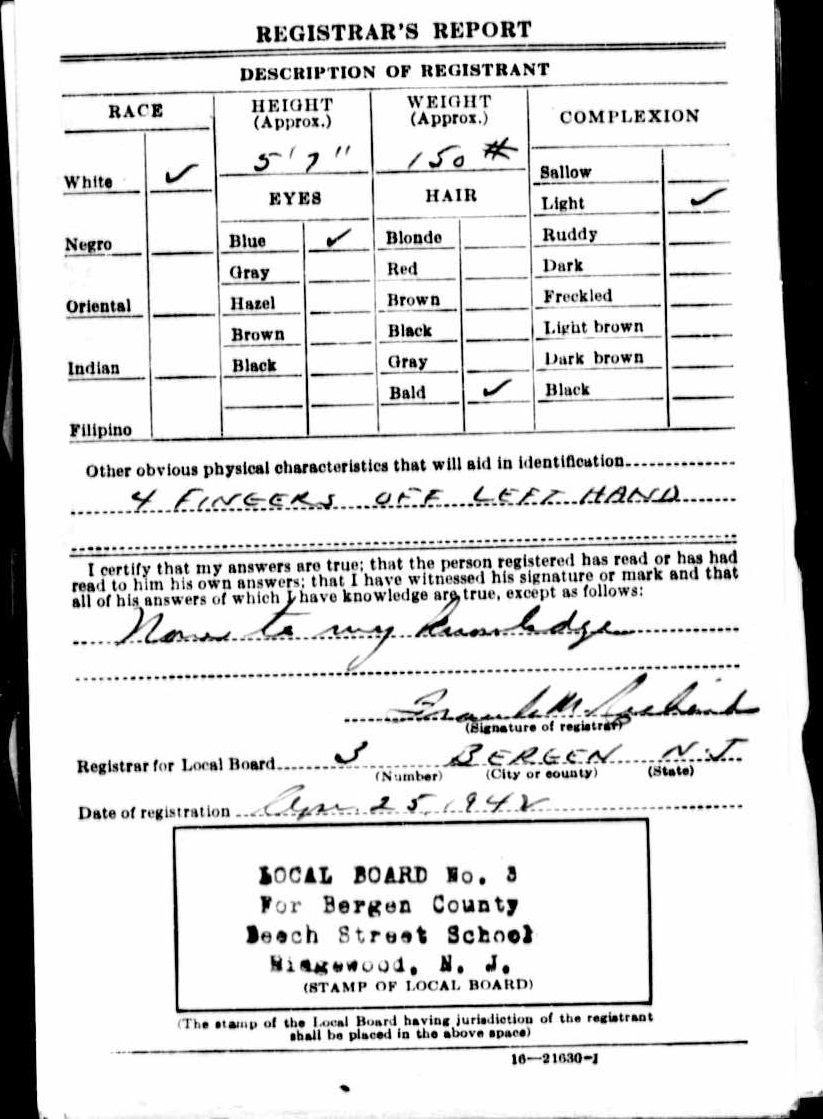 REGISTRAR'S REPORT
DESCRIPTION OF REGISTRANT
RACE
HEIGHT
(Approx.)
WEIGHT
(Approx.)
COMPLEXION
5' 7"
150 #
White ✓
EYES
HAIR
Sallow
Light ✓
Negro
Blue ✓
Blonde
Ruddy
Gray
Red
Dark
Oriental
Hazel
Brown
Freckled
Brown
Black
Light brown
Indian
Black
Gray
Dark brown
Bald ✓
Black
Filipino
Other obvious physical characteristics that will aid in identification
4 FINGERS OFF LEFT HAND
I certify that my answers are true; that the person registered has read or has had
read to him his own answers; that I have witnessed his signature or mark and that
all of his answers of which I have knowledge are true, except as follows:
None to my knowledge
Frank M.
(Signature of registrar)
Registrar for Local Board 3 BERGEN N.J.
(Number) (City or county) (State)
Date of registration Apr. 25, 1942
LOCAL BOARD No. 3
For Bergen County
Beech Street School
Ridgewood, N. J.
(STAMP OF LOCAL BOARD)
(The stamp of the Local Board having jurisdiction of the registrant
shall be placed in the above space)
16—21630-1